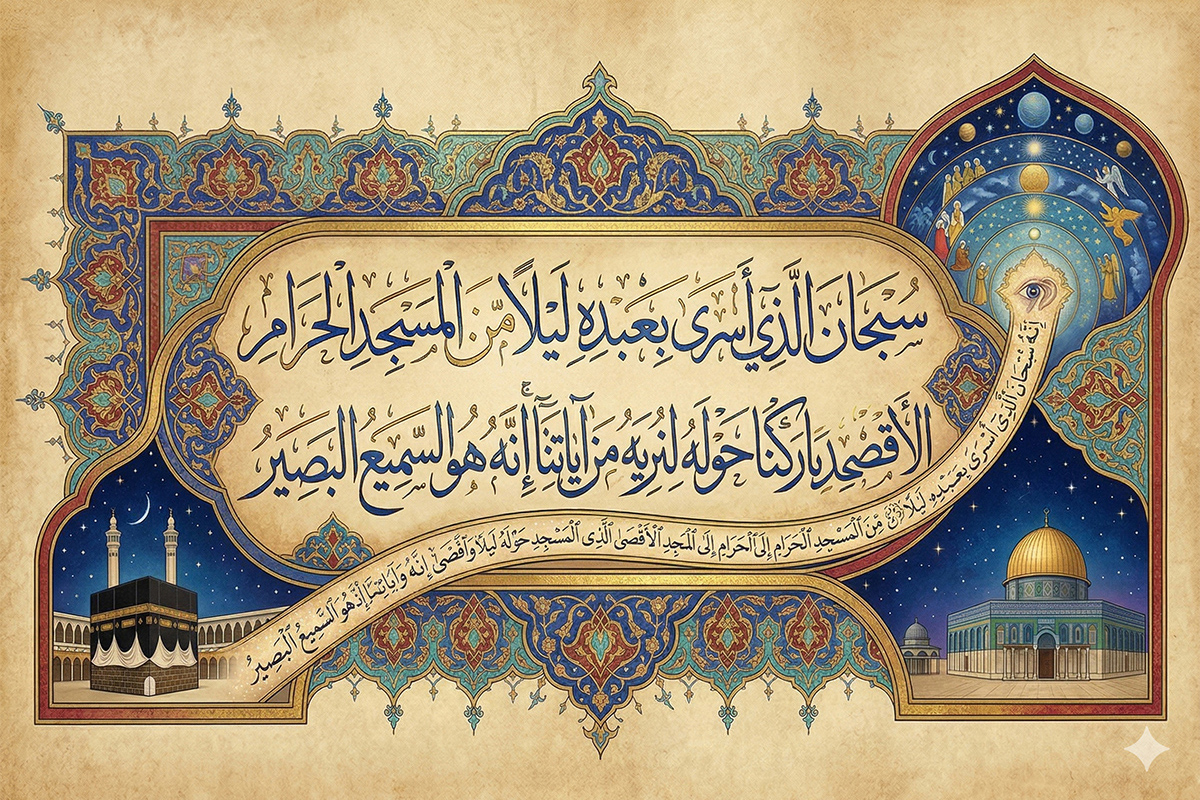 سُبْحَانَ الَّذِي أَسْرَى بِعَبْدِهِ لَيْلًا مِّنَ الْمَسْجِدِ الْحَرَامِ
الْأَقْصَد بَارَكْنَا حَوْلَهُ لِنُرِيَهُ مِنْ آيَاتِنَا إِنَّهُ هُوَ السَّمِيعُ الْبَصِيرُ
إِنَّهُ سُبْحَانَ الَّذِي أَسْرَى بِعَبْدِهِ لَيْلًا مِّنَ الْمَسْجِدِ الْحَرَامِ إِلَى الْحَرَامِ إِلَى الْمَجِدِ الْأَقْصَى الَّذِي الْمَسْجِدِ حَوْلَهُ لَيْلًا إِنَّهُ هُوَ السَّمِيعُ الْبَصِيرُ